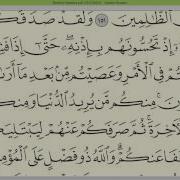 ٱلظَّٰلِمِينَ ١٥١ وَلَقَدْ صَدَقَكُ
إِذْ تَحُسُّونَهُم بِإِذْنِهِۦ حَتَّىٰٓ إِذَا فَشِ
تُمْ فِى ٱلْأَمْرِ وَعَصَيْتُم مِّنۢ بَعْدِ مَآ أَرَىٰ
ونَ مِنكُم مَّن يُرِيدُ ٱلدُّنْيَا وَمِنكُم
ٱلْءَاخِرَةَ ثُمَّ صَرَفَكُمْ عَنْهُمْ لِيَبْتَلِيَ
عَفَا عَنكُمْ وَٱللَّهُ ذُو فَضْلٍ عَلَى ٱلْمُؤْمِ